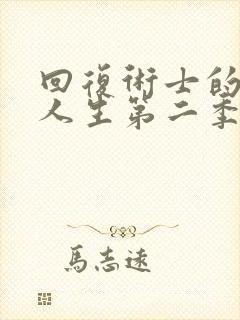 回復術士的
人生第二季
馬志遠